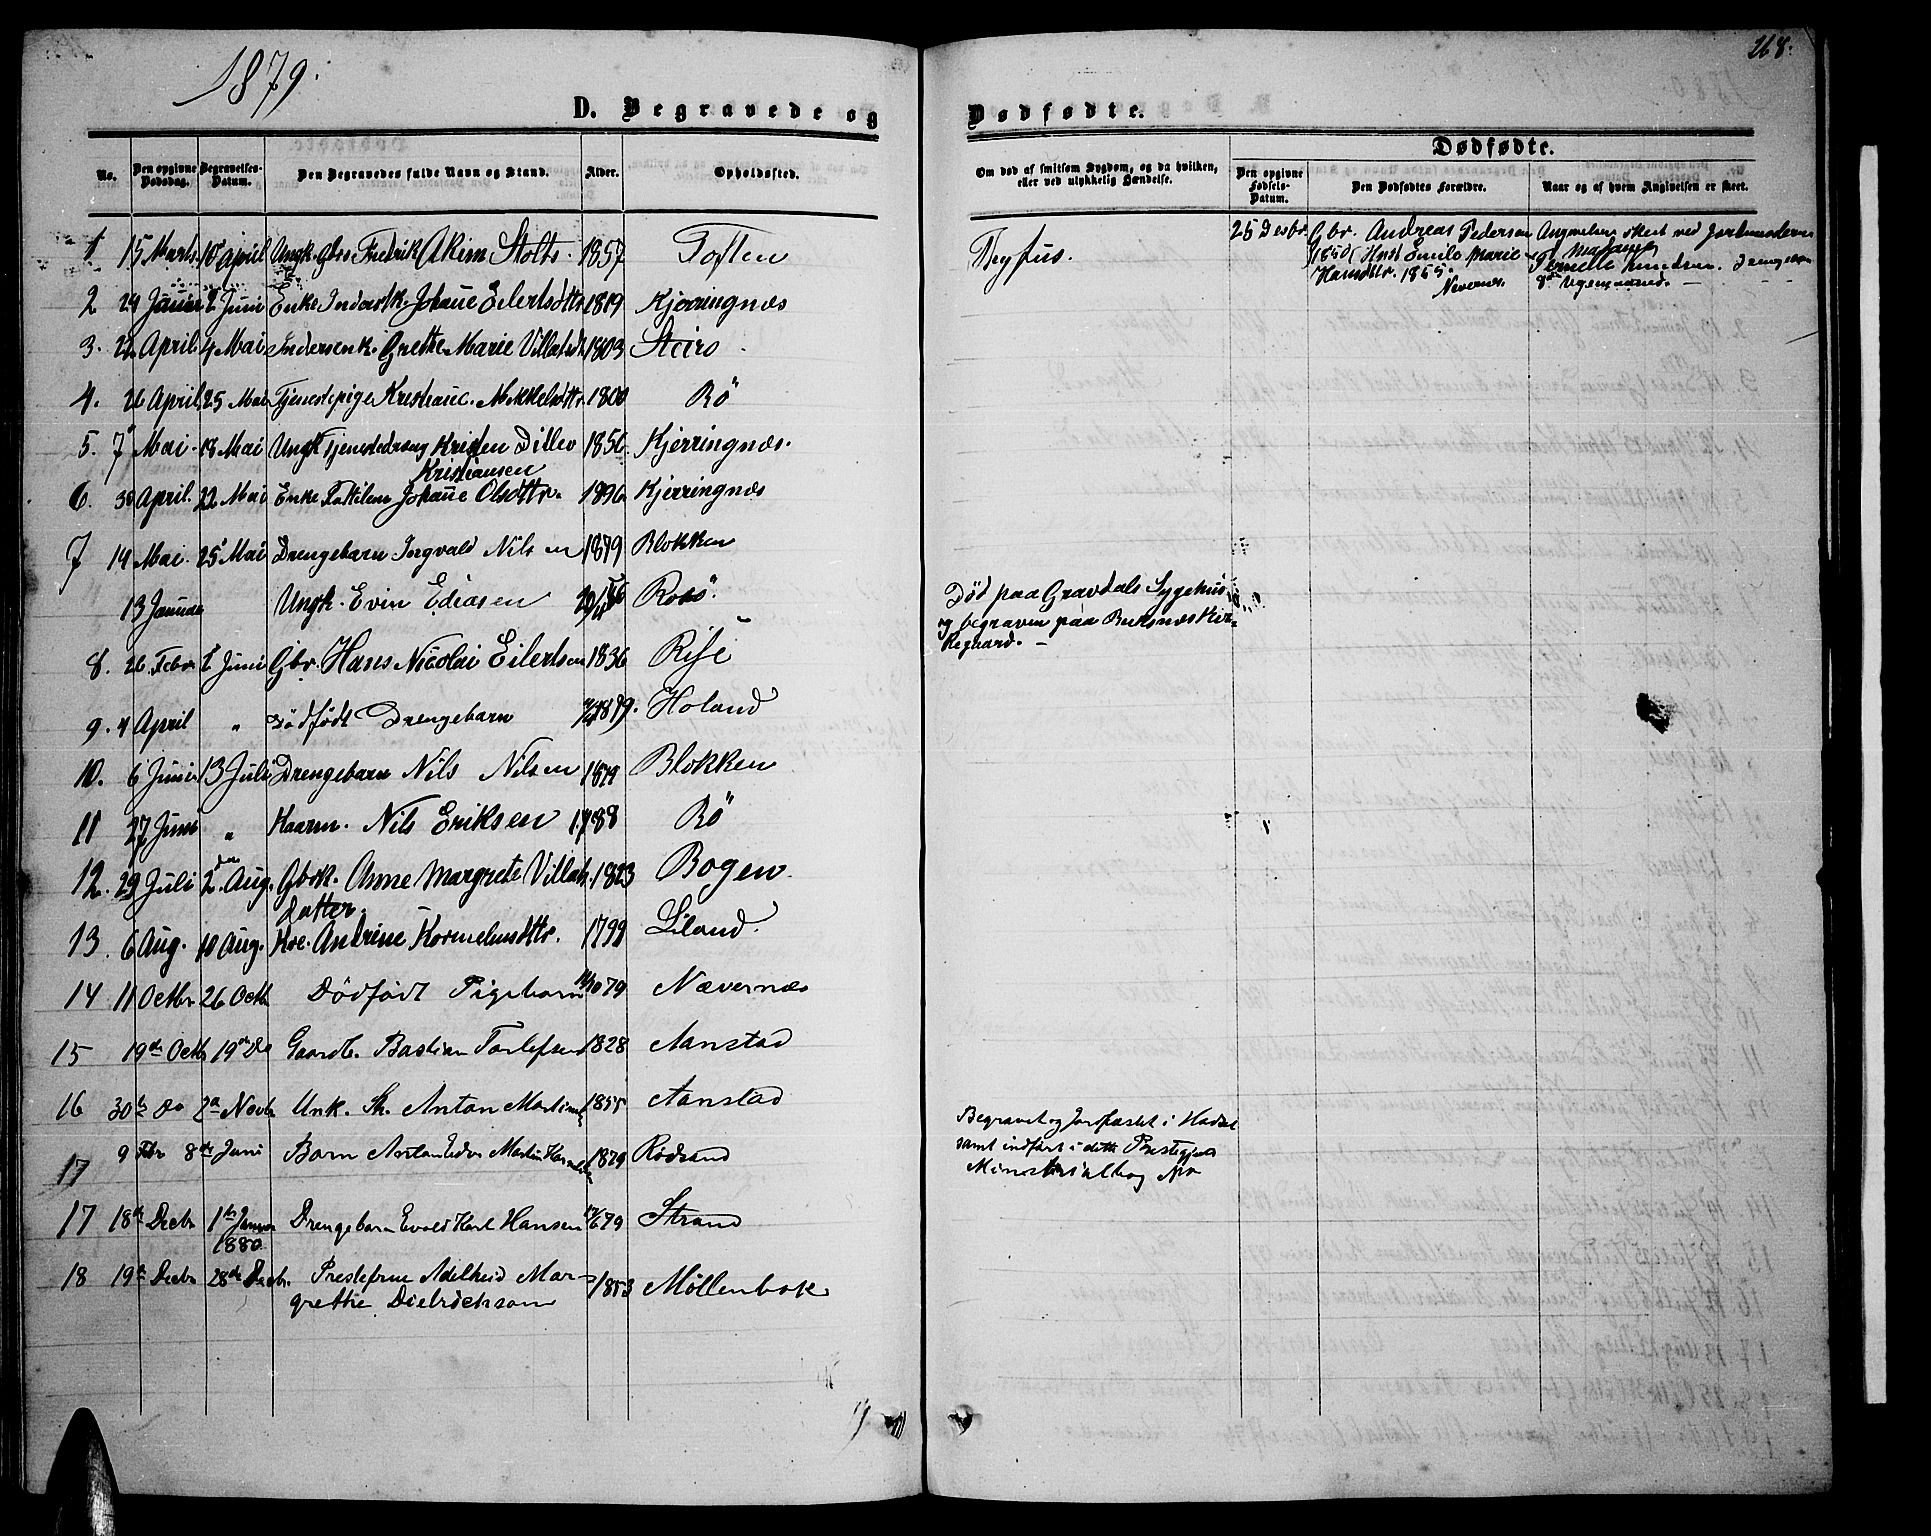 1879.
268.
D. Begravede og
Dødfødte.
No.
Den opgivne Dødsdag.
Begravelses-Datum.
Den Begravedes fulde Navn og Stand.
Alder.
Opholdssted.
Om død af smitsom Sygdom, og da hvilken, eller ved ulykkelig Hændelse.
Dødfødte.
Den opgivne Fødsels-Datum.
Den Dødfødtes Forældre.
Naar og af hvem Angivelsen er skeet.
1 15 Marts 18 April Ungk. Gbr. Fredrik Akim Stolts. 1857 Toften
Tyfus.
25 Desbr. Gbr. Andreas Pedersen
Hamdtr. 1855.
Nevernes.
Pernelle Knudsen.
2 24 Januar 2 Juni Enke Inderstk. Johanne Eilertsdttr 1819 Kjerringnæs
3. 22 April 4 Mai Indersenk. Grethe Marie Villatsdt 1803 Steiro
4. 26 April 25 Mai Tjenestepige Kristiane Mikkelsdttr 1800 Bö
5. 7 Mai 18 Mai Ungk Tjenestedreng Kristen Ditlev 1856 Kjerringnæs.
Kristiansen
6. 30 April. 22 Mai Enke Fattilem Johanne Olsdttr. 1896 Kjerringnæs
7 14 Mai. 25 Mai Drengebarn Ingvald Nilsen 1879 Blokken
13 Januar Ungk. Evin Ediasen
Død paa Gravdals Sygehus
og begraven paa Buksnæs Kir-
kegaard. —
8. 26 Febr. 2 Juni Gbr. Hans Nicolai Eilertsen 1836 Rise
9. 4 April " Dödfödt Drengebarn 4/4 1879. Holand
10. 6 Juni 13 Juli Drengebarn Nils Nilsen 1879 Blokken
11 27 Juni " Kaarm. Nils Eriksen 1788 Bö
12. 29 Juli 2den Aug. Gbrk. Anne Margrete Villats. 1823 Bogen
datter.
13. 6 Aug. 10 Aug. Koe. Andrine Korneliusdttr. 1799 Liland.
14 11 Octbr 26 Octb Dödfödt Pigebarn 11/10 79 Nævernæs
15 19de Octb 19de Do Gaardb. Bastian Torlefsen 1828 Aanstad
16 30te Do 2den Novbr Unk. Sk. Anton Martinus 1855 Aanstad
17 9 Febr 8de Juni Barn Anton Edor Martin 1879 Rødsand
Begravet og Jordfæstet i Hadsel
samt indført i dette Prestegjelds
Ministerialbog No
17 18de Decbr 1te Januar Drengebarn Evald Karl Hansen 79 Strand
1880
18 19de Decbr 28de Decbr. Prestefrue Adelheid Mar- 1853 Møllenbok
grethe Dietrichson